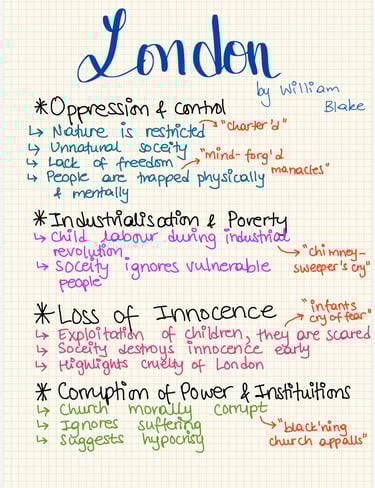 London
by William
Blake
*Oppression & control
↳ Nature is restricted → "charter'd"
↳ Unnatural soceity
↳ Lack of freedom → "mind-forg'd
manacles"
↳ People are trapped physically
& mentally
*Industrialisation & Poverty
↳ Child labour during industrial
revolution → "chimney-
sweeper's cry"
↳ Soceity ignores vulnerable
people
*Loss of Innocence → "infants
cry of fear"
↳ Exploitation of children, they are scared
↳ Soceity destroys innocence early
↳ Highlights cruelty of London
*Corruption of Power & Instituitions
↳ Church morally corrupt
↳ Ignores suffering → "black'ning
church appalls"
↳ Suggests hypocrisy